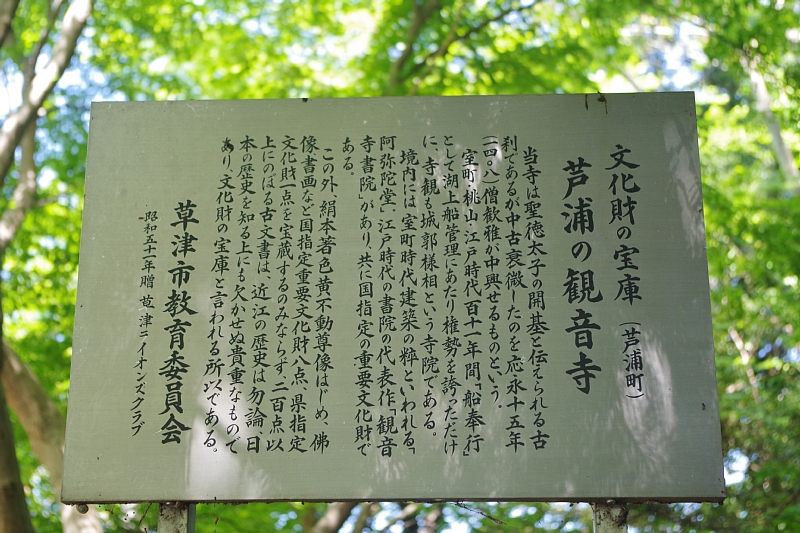 文化財の宝庫（芦浦町）
芦浦の観音寺
当寺は聖徳太子の開基と伝えられる古
刹であるが中古衰微したのを応永十五年
（一四〇八）僧歓雅が中興せるものという。
室町・桃山・江戸時代百十一年間「船奉行」
として湖上船管理にあたり権勢を誇っただけ
に、寺観も城郭様相という寺院である。
境内には室町時代建築の粋といわれる「
阿弥陀堂」江戸時代の書院の代表作「観音
寺書院」があり、共に国指定の重要文化財で
ある。
この外、絹本著色黄不動尊像はじめ、佛
像書画など国指定重要文化財八点、県指定
文化財一点を宝蔵するのみならず、二百点以
上にのぼる古文書は、近江の歴史は勿論、日
本の歴史を知る上にも欠かせぬ貴重なもので
あり、文化財の宝庫と言われる所以である。
草津市教育委員会
昭和五十一年贈 草津ライオンズクラブ